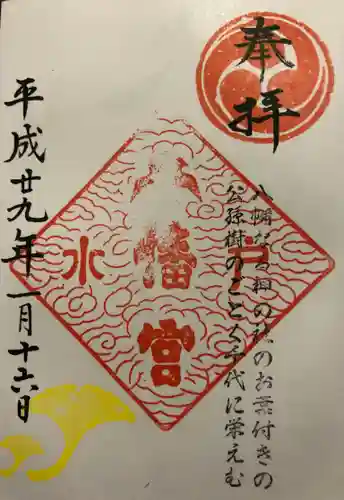 奉拝
八幡なる神の社のお葉付きの
公孫樹のことく千代に栄えむ
水戸
八幡宮
平成廿九年一月十六日